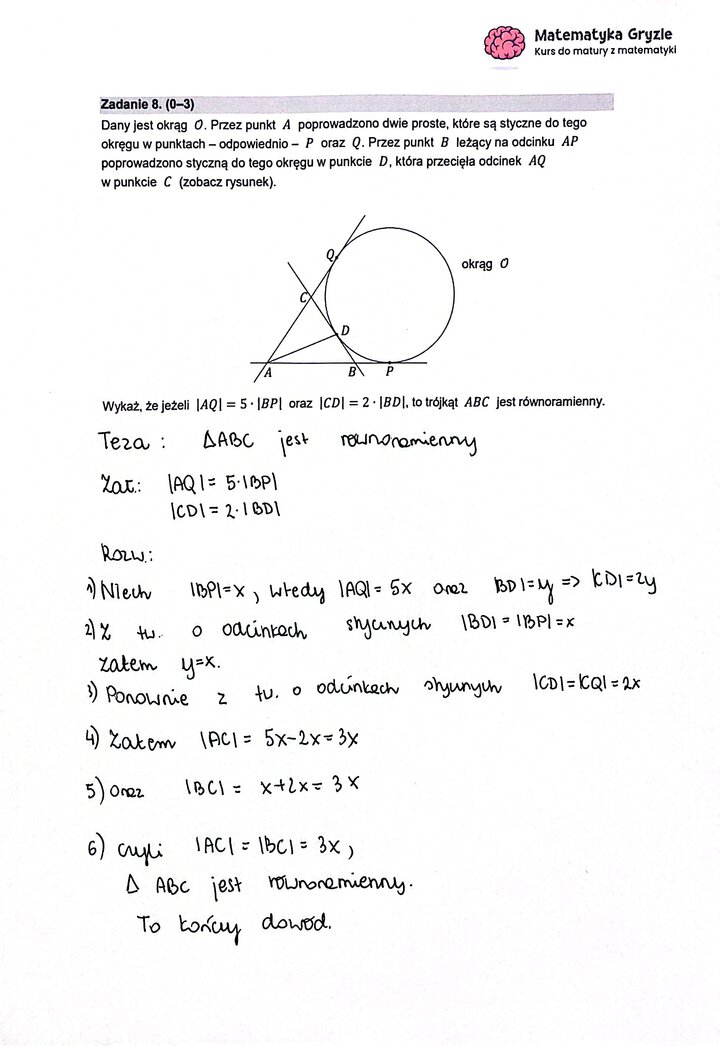 Matematyka Gryzie
Kurs do matury z matematyki
Zadanie 8. (0–3)
Dany jest okrąg O. Przez punkt A poprowadzono dwie proste, które są styczne do tego
okręgu w punktach – odpowiednio – P oraz Q. Przez punkt B leżący na odcinku AP
poprowadzono styczną do tego okręgu w punkcie D, która przecięła odcinek AQ
w punkcie C (zobacz rysunek).
Q
okrąg O
C
D
A B P
Wykaż, że jeżeli |AQ| = 5 · |BP| oraz |CD| = 2 · |BD|, to trójkąt ABC jest równoramienny.
Teza : ΔABC jest równoramienny
Zał.: |AQ| = 5·|BP|
|CD| = 2·|BD|
Rozw:
1) Niech |BP|=x, wtedy |AQ|= 5x oraz |BD|=y => |CD|=2y
2) Z tw. o odcinkach stycznych |BD| = |BP| = x
zatem y=x.
3) Ponownie z tw. o odcinkach stycznych |CD|=|CQ|=2x
4) Zatem |AC| = 5x-2x=3x
5) oraz |BC| = x+2x= 3x
6) czyli |AC| = |BC| = 3x,
Δ ABC jest równoramienny.
To kończy dowód.